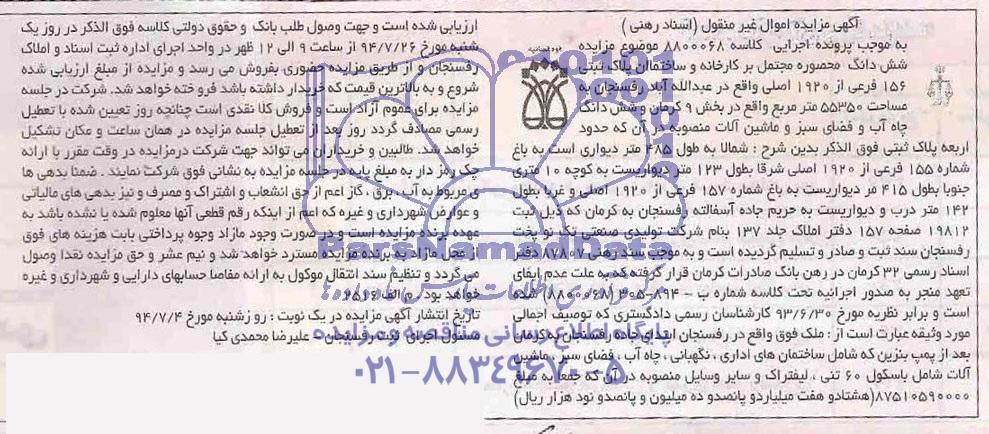 آگهی مزایده اموال غیر منقول (اسناد رهنی)
به موجب پرونده اجرایی کلاسه ۸۸۰۰۰۶۸ موضوع مزایده
شش دانگ محصوره مجتمل بر کارخانه و ساختمان پلاک ثبتی
۱۵۶ فرعی از ۱۹۲۰ اصلی واقع در عبدالله آباد رفسنجان به
مساحت ۵۵۳۵۰ متر مربع واقع در بخش ۹ کرمان و شش دانگ
چاه آب و فضای سبز و ماشین آلات منصوبه در آن که حدود
اربعه پلاک ثبتی فوق الذکر بدین شرح : شمالا به طول ۴۸۵ متر دیواری است به باغ
شماره ۱۵۵ فرعی از ۱۹۲۰ اصلی شرقا بطول ۱۲۳ متر دیواریست به کوچه ۱۰ متری
جنوبا بطول ۴۱۵ مر دیواریست به باغ شماره ۱۵۷ فرعی از ۱۹۲۰ اصلی و غربا بطول
۱۴۲ متر درب و دیواریست به حریم جاده آسفالته رفسنجان به کرمان که ذیل ثبت
۱۹۸۱۲ صفحه ۱۵۷ دفتر املاک جلد ۱۳۷ بنام شرکت تولیدی صنعتی تک نو پخت
رفسنجان سند ثبت و صادر و تسلیم گردیده است و به موجب سند رهنی ۸۷۸۰۷ دفتر
اسناد رسمی ۳۲ کرمان در رهن بانک صادرات کرمان قرار گرفته که به علت عدم ایفای
تعهد منجر به صدور اجرائیه تحت کلاسه شماره ب – ۸۹۴–۳۰۵ (۸۸۰۰۰۶۸) شده
است و برابر نظریه مورخ ۹۳/۶/۳۰ کارشناسان رسمی دادگستری که توصیف اجمالی
مورد وثیقه عبارت است از : ملک فوق واقع در رفسنجان ابتدای جاده رفسنجان به کرمان
بعد از پمپ بنزین که شامل ساختمان های اداری ، نگهبانی ، چاه آب ، فضای سبز ، ماشین
آلات شامل باسکول ۶۰ تنی ، لیفتراک و سایر وسایل منصوبه در آن که جمعا به مبلغ
۸۷۵۱۰۵۹۰۰۰۰ (هشتادو هفت میلیاردو پانصدو ده میلیون و پانصدو نود هزار ریال)
ارزیابی شده است و جهت وصول طلب بانک و حقوق دولتی کلاسه فوق الذکر در روز یک
شنبه مورخ ۹۴/۷/۲۶ از ساعت ۹ الی ۱۲ ظهر در واحد اجرای اداره ثبت اسناد و املاک
رفسنجان و از طریق مزایده حضوری بفروش می رسد و مزایده از مبلغ ارزیابی شده
شروع و به بالاترین قیمت که خریدار داشته باشد فروخته خواهد شد. شرکت در جلسه
مزایده برای عموم آزاد است و فروش کلا نقدی است چنانچه روز تعیین شده با تعطیل
رسمی مصادف گردد روز بعد از تعطیل جلسه مزایده در همان ساعت و مکان تشکیل
خواهد شد. طالبین و خریداران می تواند جهت شرکت درمزایده در وقت مقرر با ارائه
چک رمز دار به مبلغ پایه در جلسه مزایده به نشانی فوق شرکت نمایند . ضمنا بدهی ها
ی مربوط به آب ، برق ، گاز اعم از حق انشعاب و اشتراک و مصرف و نیز بدهی های مالیاتی
و عوارض شهرداری و غیره که اعم از اینکه رقم قطعی آنها معلوم شده یا نشده باشد به
عهده برنده مزایده است و در صورت وجود مازاد وجوه پرداختی بابت هزینه های فوق
از محل مازاد به برنده مزایده مسترد خواهد شد و نیم عشر و حق مزایده نقدا وصول
می گردد و تنظیم سند انتقال موکول به ارائه مفاصا حسابهای دارایی و شهرداری و غیره
خواهد بود . م الف ۲۵۱۶
تاریخ انتشار آگهی مزایده در یک نوبت : روزشنبه مورخ ۹۴/۷/۴
مسئول اجرای ثبت رفسنجان – علیرضا محمدی کیا
ParsNamadData
پایگاه اطلاع رسانی مناقصه و مزایده
۰۲۱-۸۸۳۴۹۶۷۰-۵